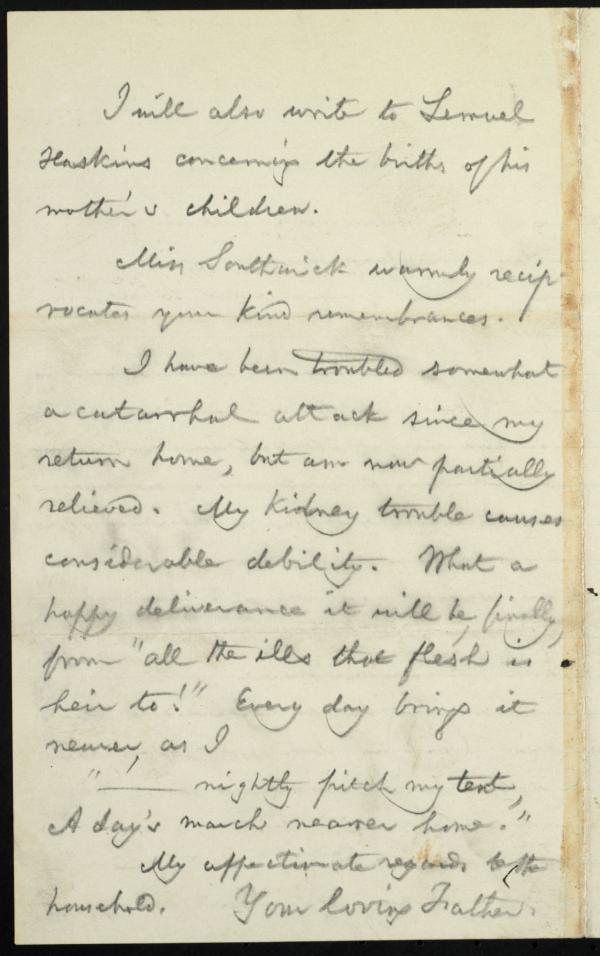 I will also write to Lemuel
Haskins concerning the births of his
mother's children.
Miss Southwick warmly recip-
rocates your kind remembrances.
I have been troubled somewhat
a catarrhal attack since my
return home, but am now partially
relieved. My kidney trouble causes
considerable debility. What a
happy deliverance it will be, finally,
from "all the ills that flesh is
heir to!" Every day brings it
nearer, as I
"—— nightly pitch my tent,
A day's march nearer home."
My affectionate regards to the
household. Your loving Father.